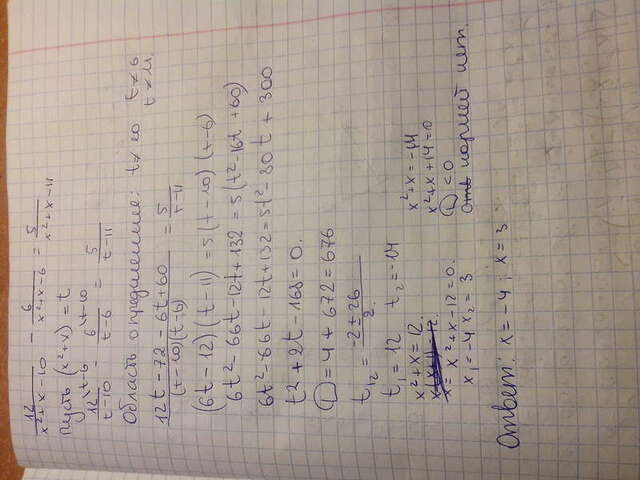 12/(x²+x-10) - 6/(x²+x-6) = 5/(x²+x-11)
Пусть (x²+x) = t
12\t-6/(t-10) - 6\t-10/(t-6) = 5/(t-11)
Область определения: t≠10 t≠6
t≠11.
(12t-72-6t+60)/((t-10)(t-6)) = 5/(t-11)
(6t-12)(t-11) = 5(t-10)(t-6)
6t²-66t-12t+132 = 5(t²-16t+60)
6t²-66t-12t+132 = 5t²-80t+300
t²+2t-168=0.
D=4+672=676
t₁₂ = (-2±26)/2
t₁=12 t₂=-14
x²+x=12.
x²+x-12=0.
x₁=-4 x₂=3
x²+x=-14
x²+x+14=0
D<0
корней нет.
Ответ: x=-4; x=3